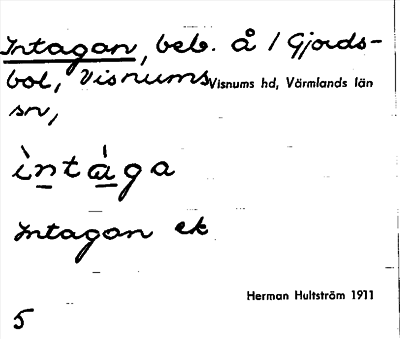 Intagan, beb. å / Gjords-
bol, Visnums Visnums hd, Värmlands län
sn,
ìntága
Intagan ek
Herman Hultström 1911
5